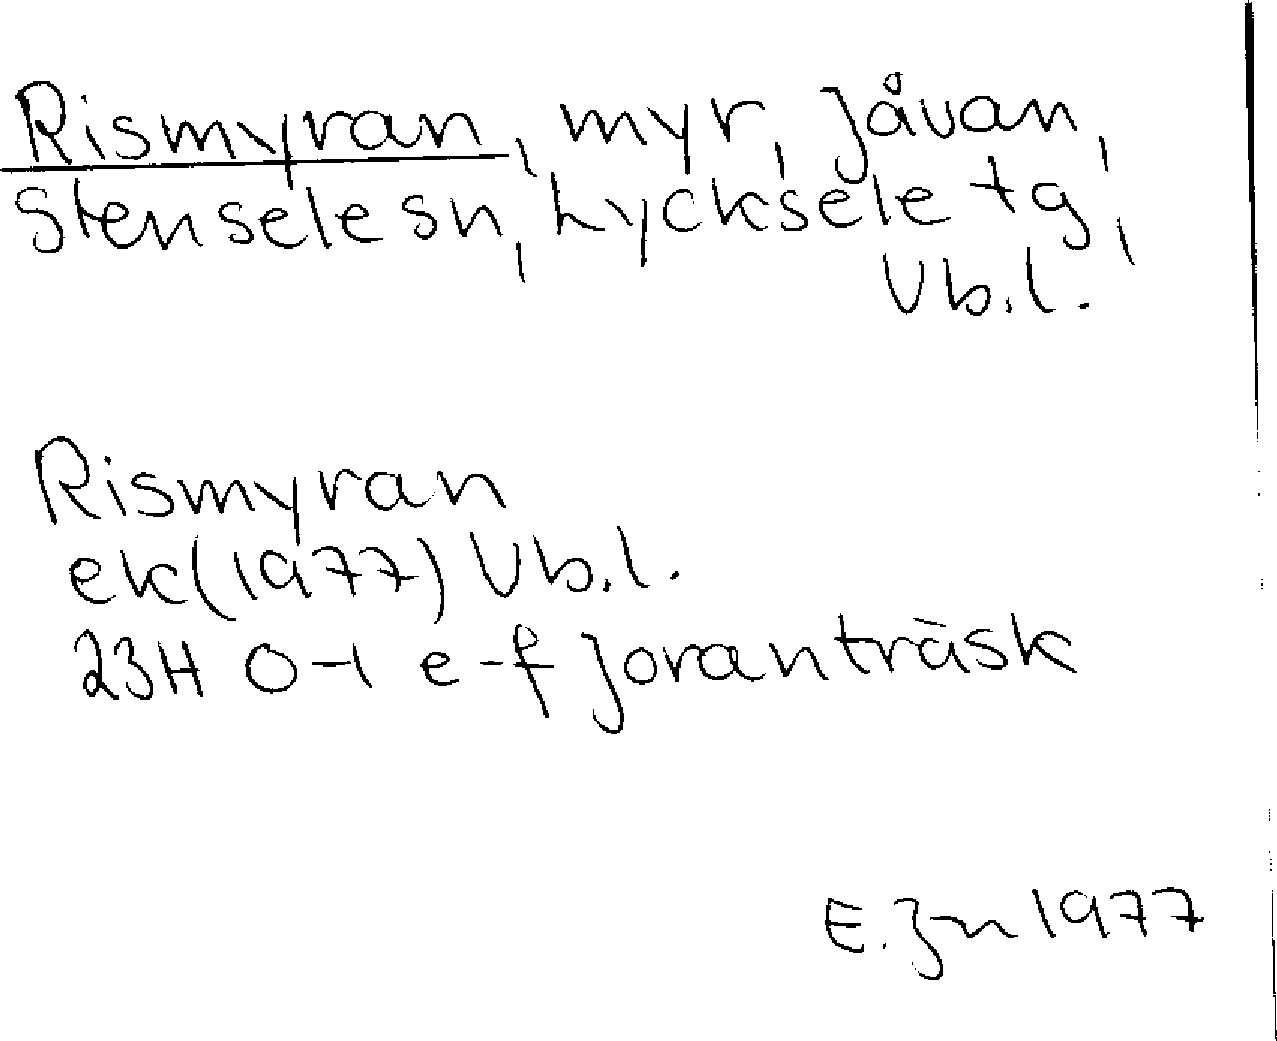 Rismyran, myr, Jåvan,
Stensele sn, Lycksele tg,
Vb.l.
Rismyran
ek(1977) Vb.l.
23H 0-1 e-f Joranträsk
E.Jn 1977